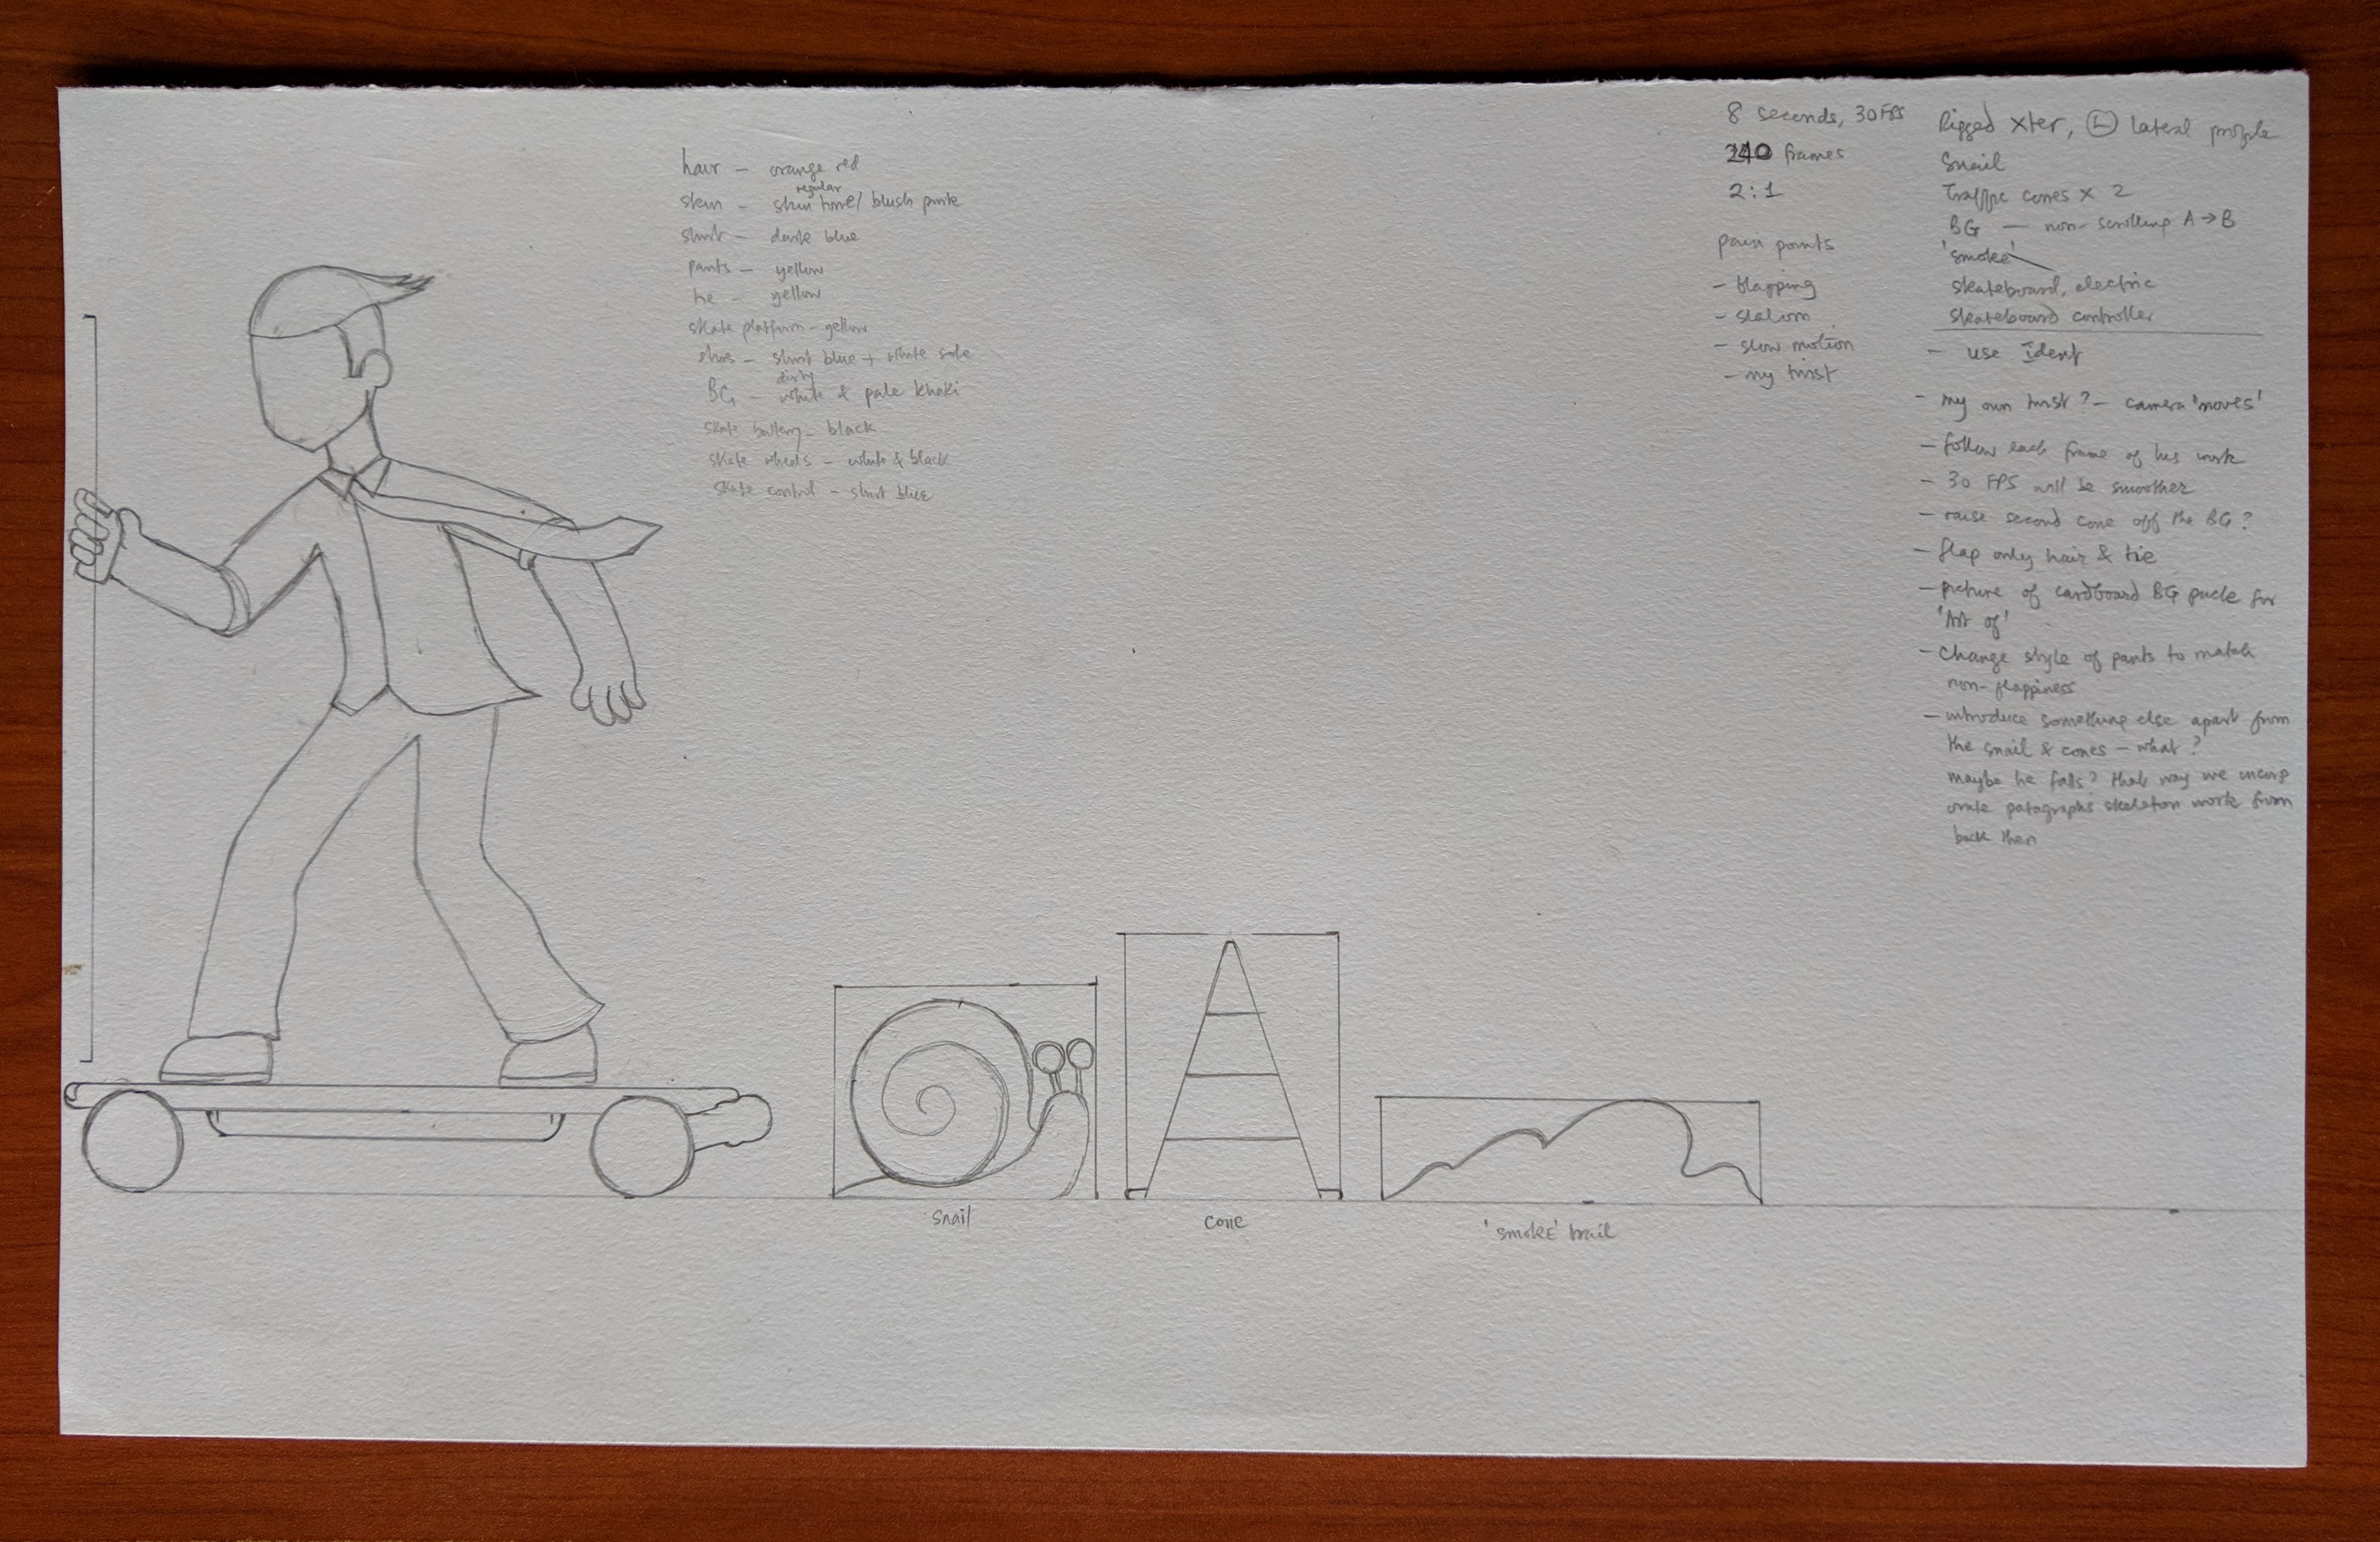 hair - orange red
regular
skin - skin tone/ blush pink
shirt - dark blue
pants - yellow
tie - yellow
skate platform - yellow
shoes - shirt blue + white sole
dirty
BG - white & pale khaki
skate battery - black
skate wheels - white & black
skate control - shirt blue
8 seconds, 30 FPS
240 frames
2:1
pain points
- flapping
- slalom
- slow motion
- my twist
Rigged xter, L lateral profile
Snail
Traffic cones x 2
BG — non-scrolling A → B
'smoke'
skateboard, electric
skateboard controller
- use ident
- my own twist? - camera 'moves'
- follow each frame of his work
- 30 FPS will be smoother
- raise second cone off the BG?
- flap only hair & tie
- picture of cardboard BG puck for
'Art of'
- Change style of pants to match
non-flappiness
- introduce something else apart from
the snail & cones - what?
maybe he falls? that way we incorp
orate patagraphs skeleton work from
back then
snail
cone
'smoke' trail